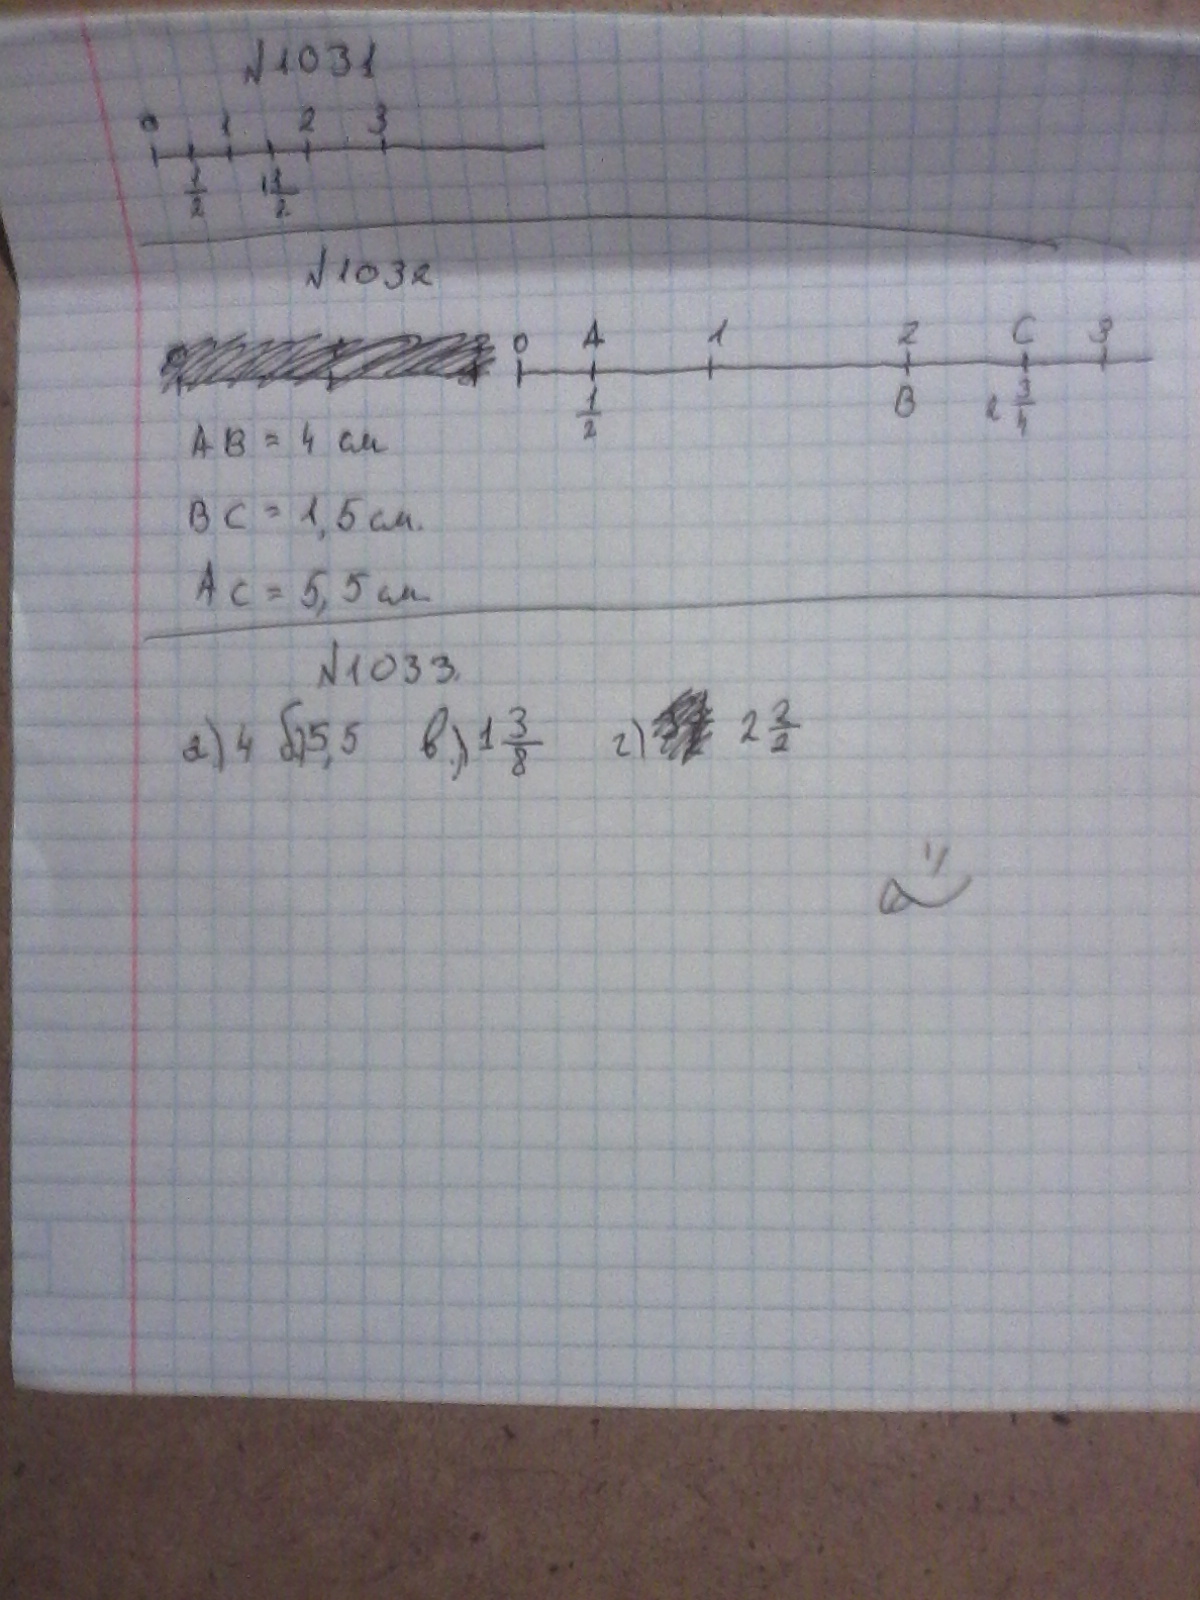 №1031
0 1 2 3
1/2 1 1/2
№1032
0 A 1 2 C 3
1/2 B 2 3/4
AB = 4 см
BC = 1,5 см.
AC = 5,5 см
№1033.
а) 4 б) 5,5 в.) 1 3/8 г) 2 2/2